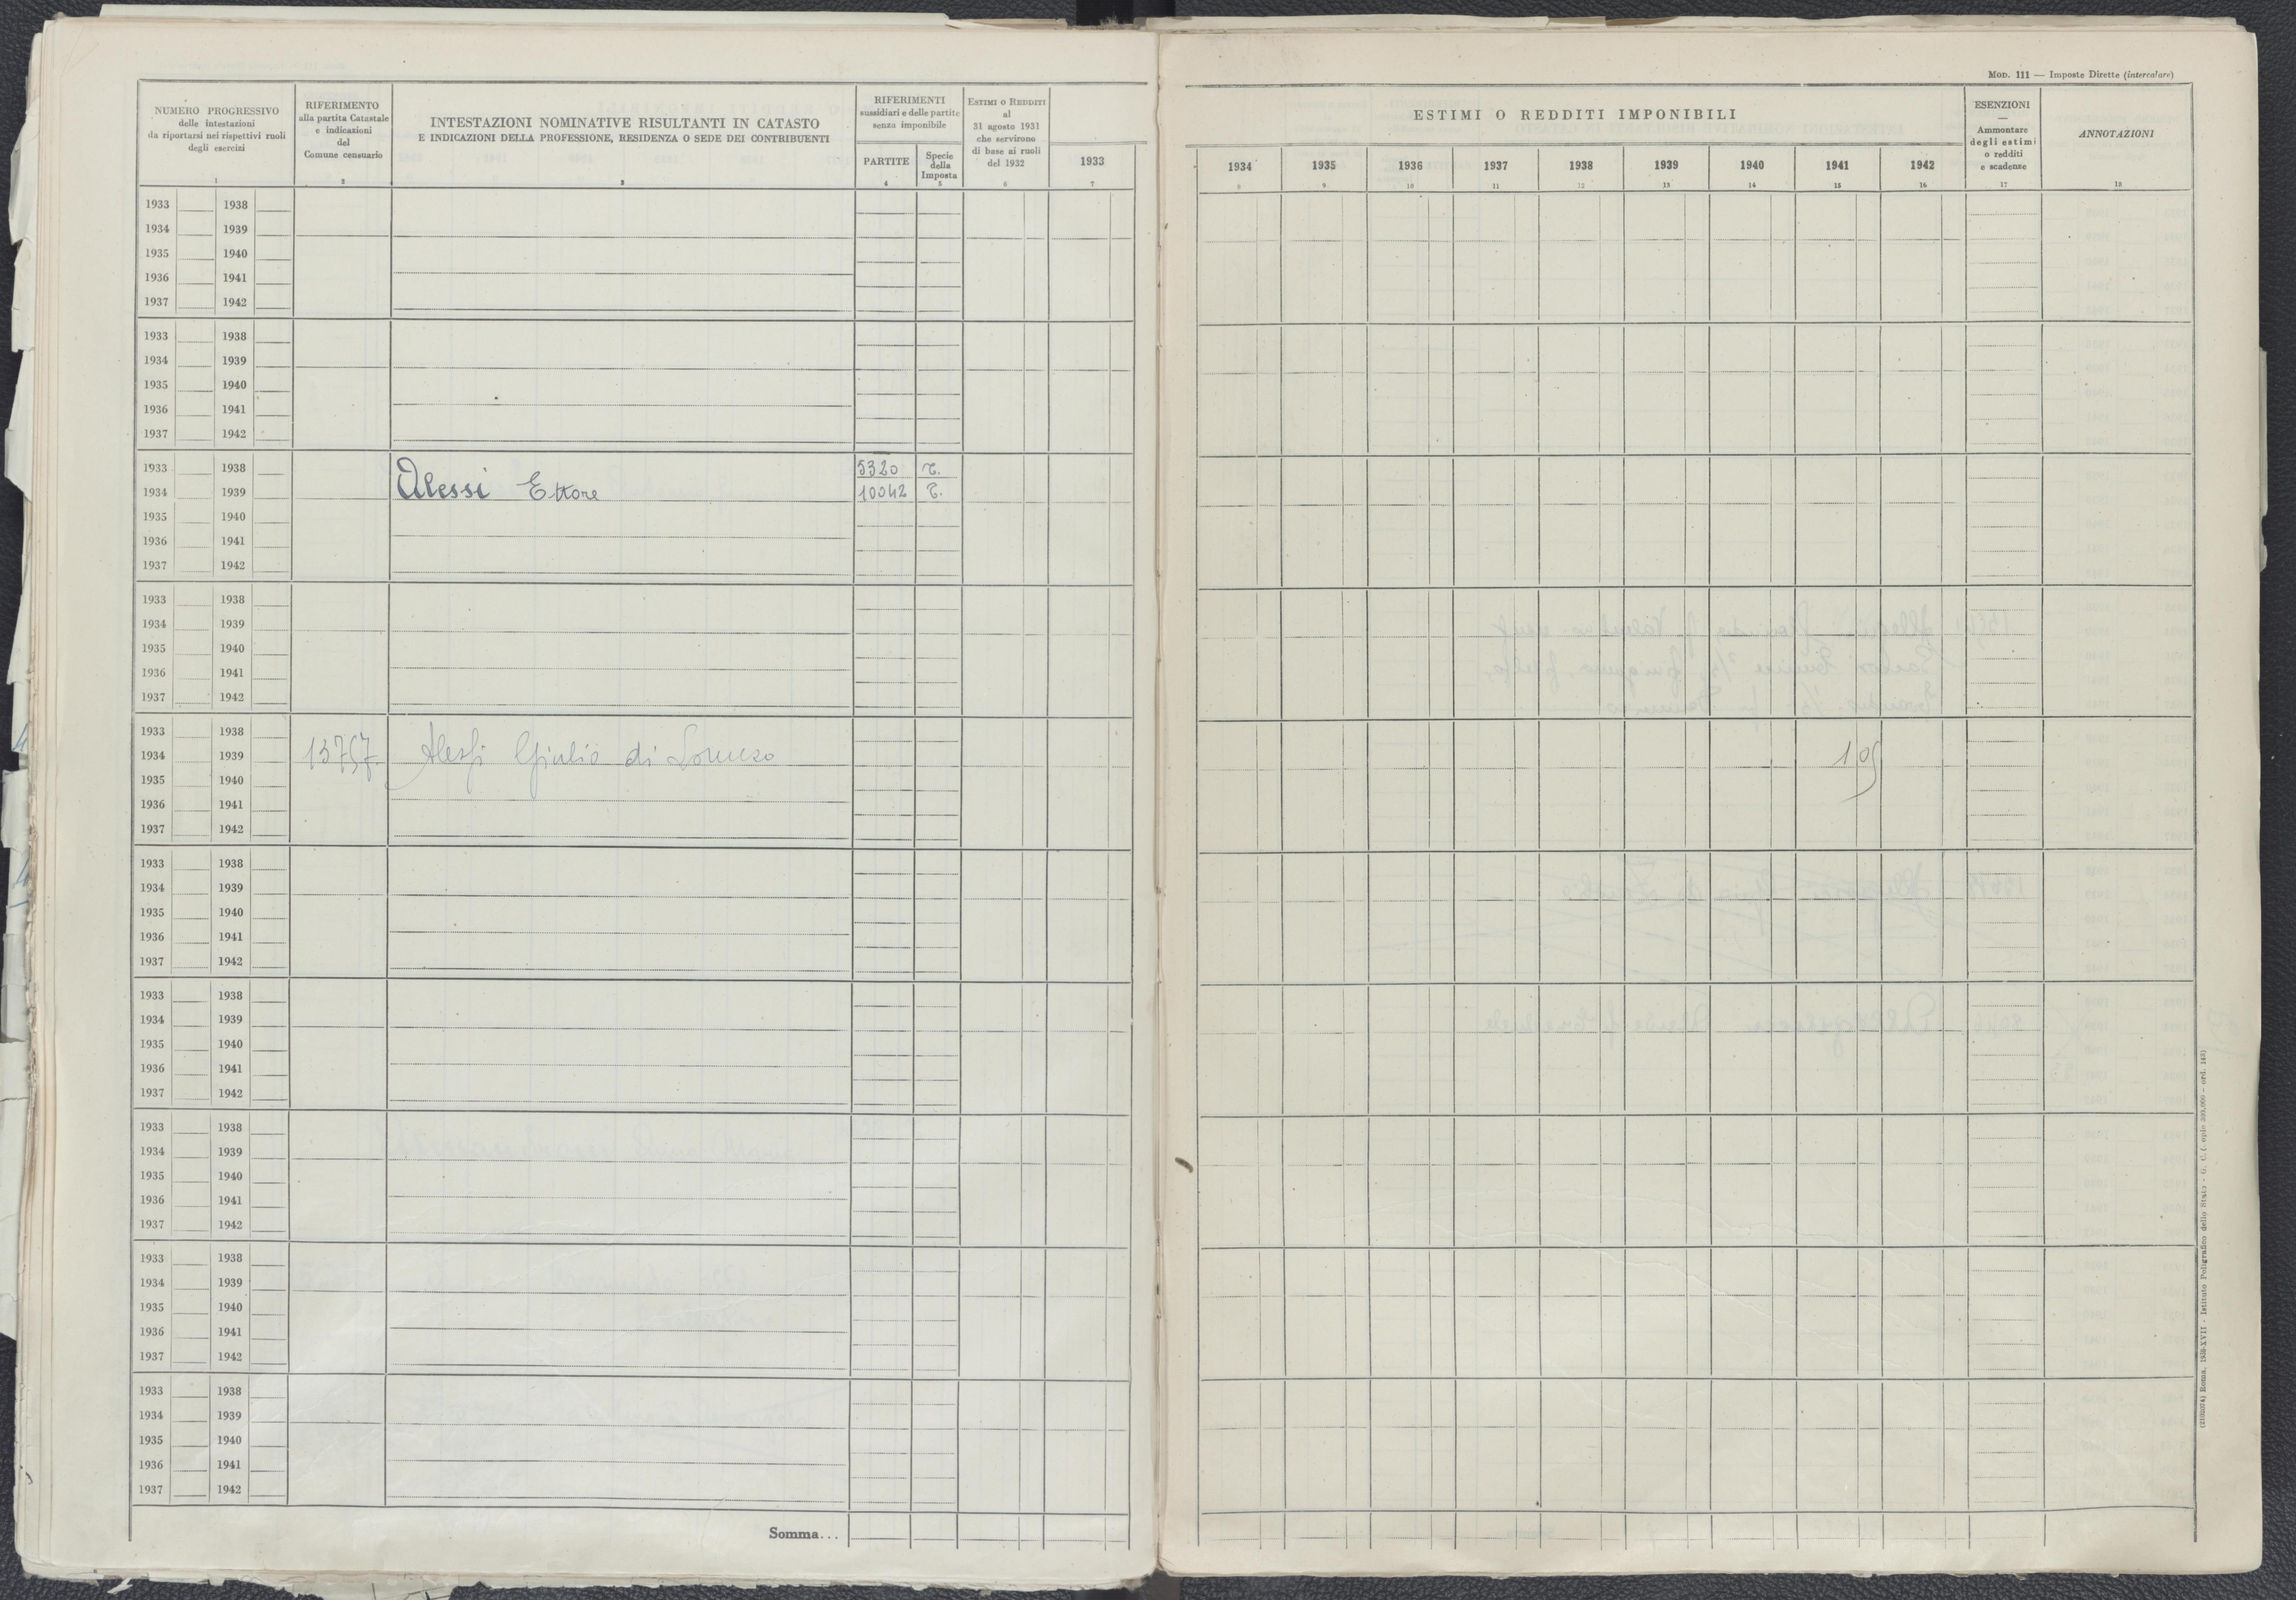 MOD. 111 — Imposte Dirette (intercalare)
NUMERO PROGRESSIVO
delle intestazioni
da riportarsi nei rispettivi ruoli
degli esercizi
1
RIFERIMENTO
alla partita Catastale
e indicazioni
del
Comune censuario
2
INTESTAZIONI NOMINATIVE RISULTANTI IN CATASTO
E INDICAZIONI DELLA PROFESSIONE, RESIDENZA O SEDE DEI CONTRIBUENTI
3
RIFERIMENTI
sussidiari e delle partite
senza imponibile
PARTITE
4
Specie
della
Imposta
5
ESTIMI O REDDITI
al
31 agosto 1931
che servirono
di base ai ruoli
del 1932
6
1933
7
ESTIMI O REDDITI IMPONIBILI
1934 1935 1936 1937 1938 1939 1940 1941 1942
8 9 10 11 12 13 14 15 16
ESENZIONI
—
Ammontare
degli estimi
o redditi
e scadenze
17
ANNOTAZIONI
18
1933 1938
1934 1939
1935 1940
1936 1941
1937 1942
1933 1938
1934 1939
1935 1940
1936 1941
1937 1942
1933 1938 5320 T.
1934 1939 Alessi Ettore 10042 T.
1935 1940
1936 1941
1937 1942
1933 1938
1934 1939
1935 1940
1936 1941
1937 1942
1933 1938
1934 1939 13757 Alessi Giulio di Lorenzo 105
1935 1940
1936 1941
1937 1942
1933 1938
1934 1939
1935 1940
1936 1941
1937 1942
1933 1938
1934 1939
1935 1940
1936 1941
1937 1942
1933 1938
1934 1939
1935 1940
1936 1941
1937 1942
1933 1938
1934 1939
1935 1940
1936 1941
1937 1942
1933 1938
1934 1939
1935 1940
1936 1941
1937 1942
Somma...
Roma, 1938-XVII - Istituto Poligrafico dello Stato - G. C.